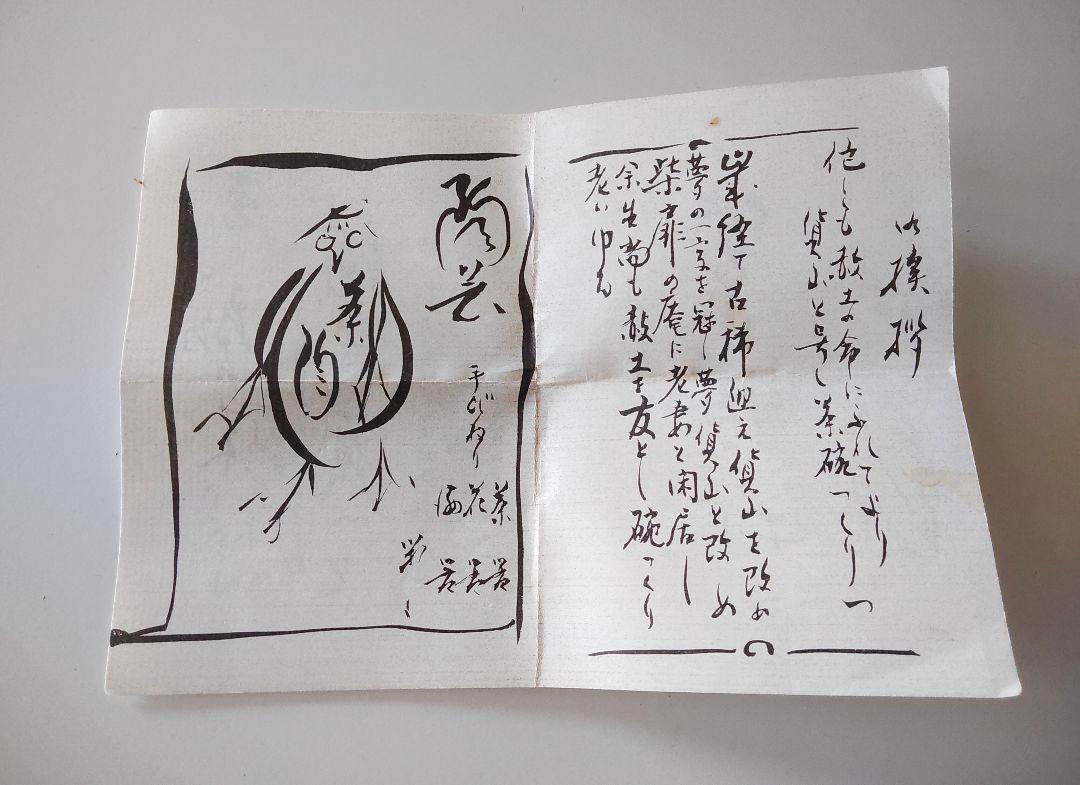 御挨拶
陶土の命にふれてより
貨山と号し茶碗つくりつ
歳経て古稀迎え貨山を改め
夢の一字を冠し夢貨山と改め
柴扉の庵に老妻と閑居し
余生尚も陶土を友とし碗つくり
老いゆる
陶芸
手びねり
茶器
花器
酒器
茶陶